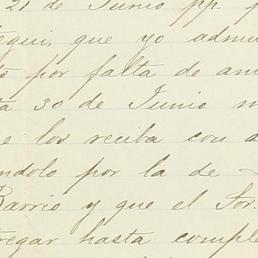 21 de Junio pp. p
tegui, que yo admi
to por falta de an
ta 30 de Junio m
e los reciba con a
ndolo por la de
Barrio y que el Sor.
tregar hasta comple